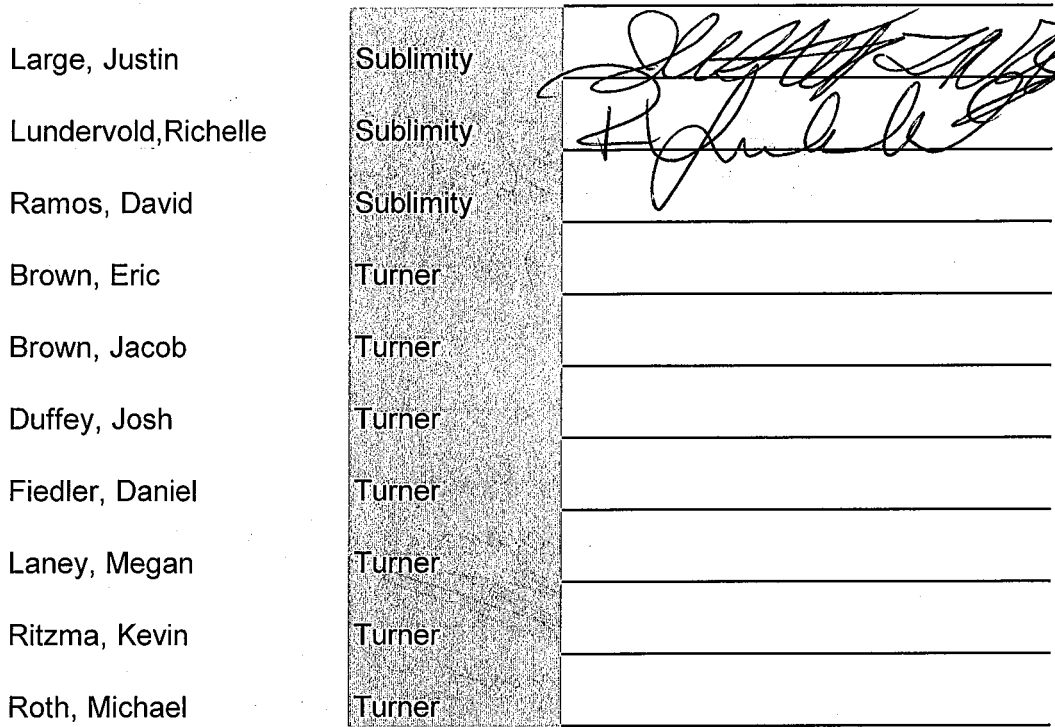 Large, Justin Sublimity
Lundervold,Richelle Sublimity
Ramos, David Sublimity
Brown, Eric Turner
Brown, Jacob Turner
Duffey, Josh Turner
Fiedler, Daniel Turner
Laney, Megan Turner
Ritzma, Kevin Turner
Roth, Michael Turner